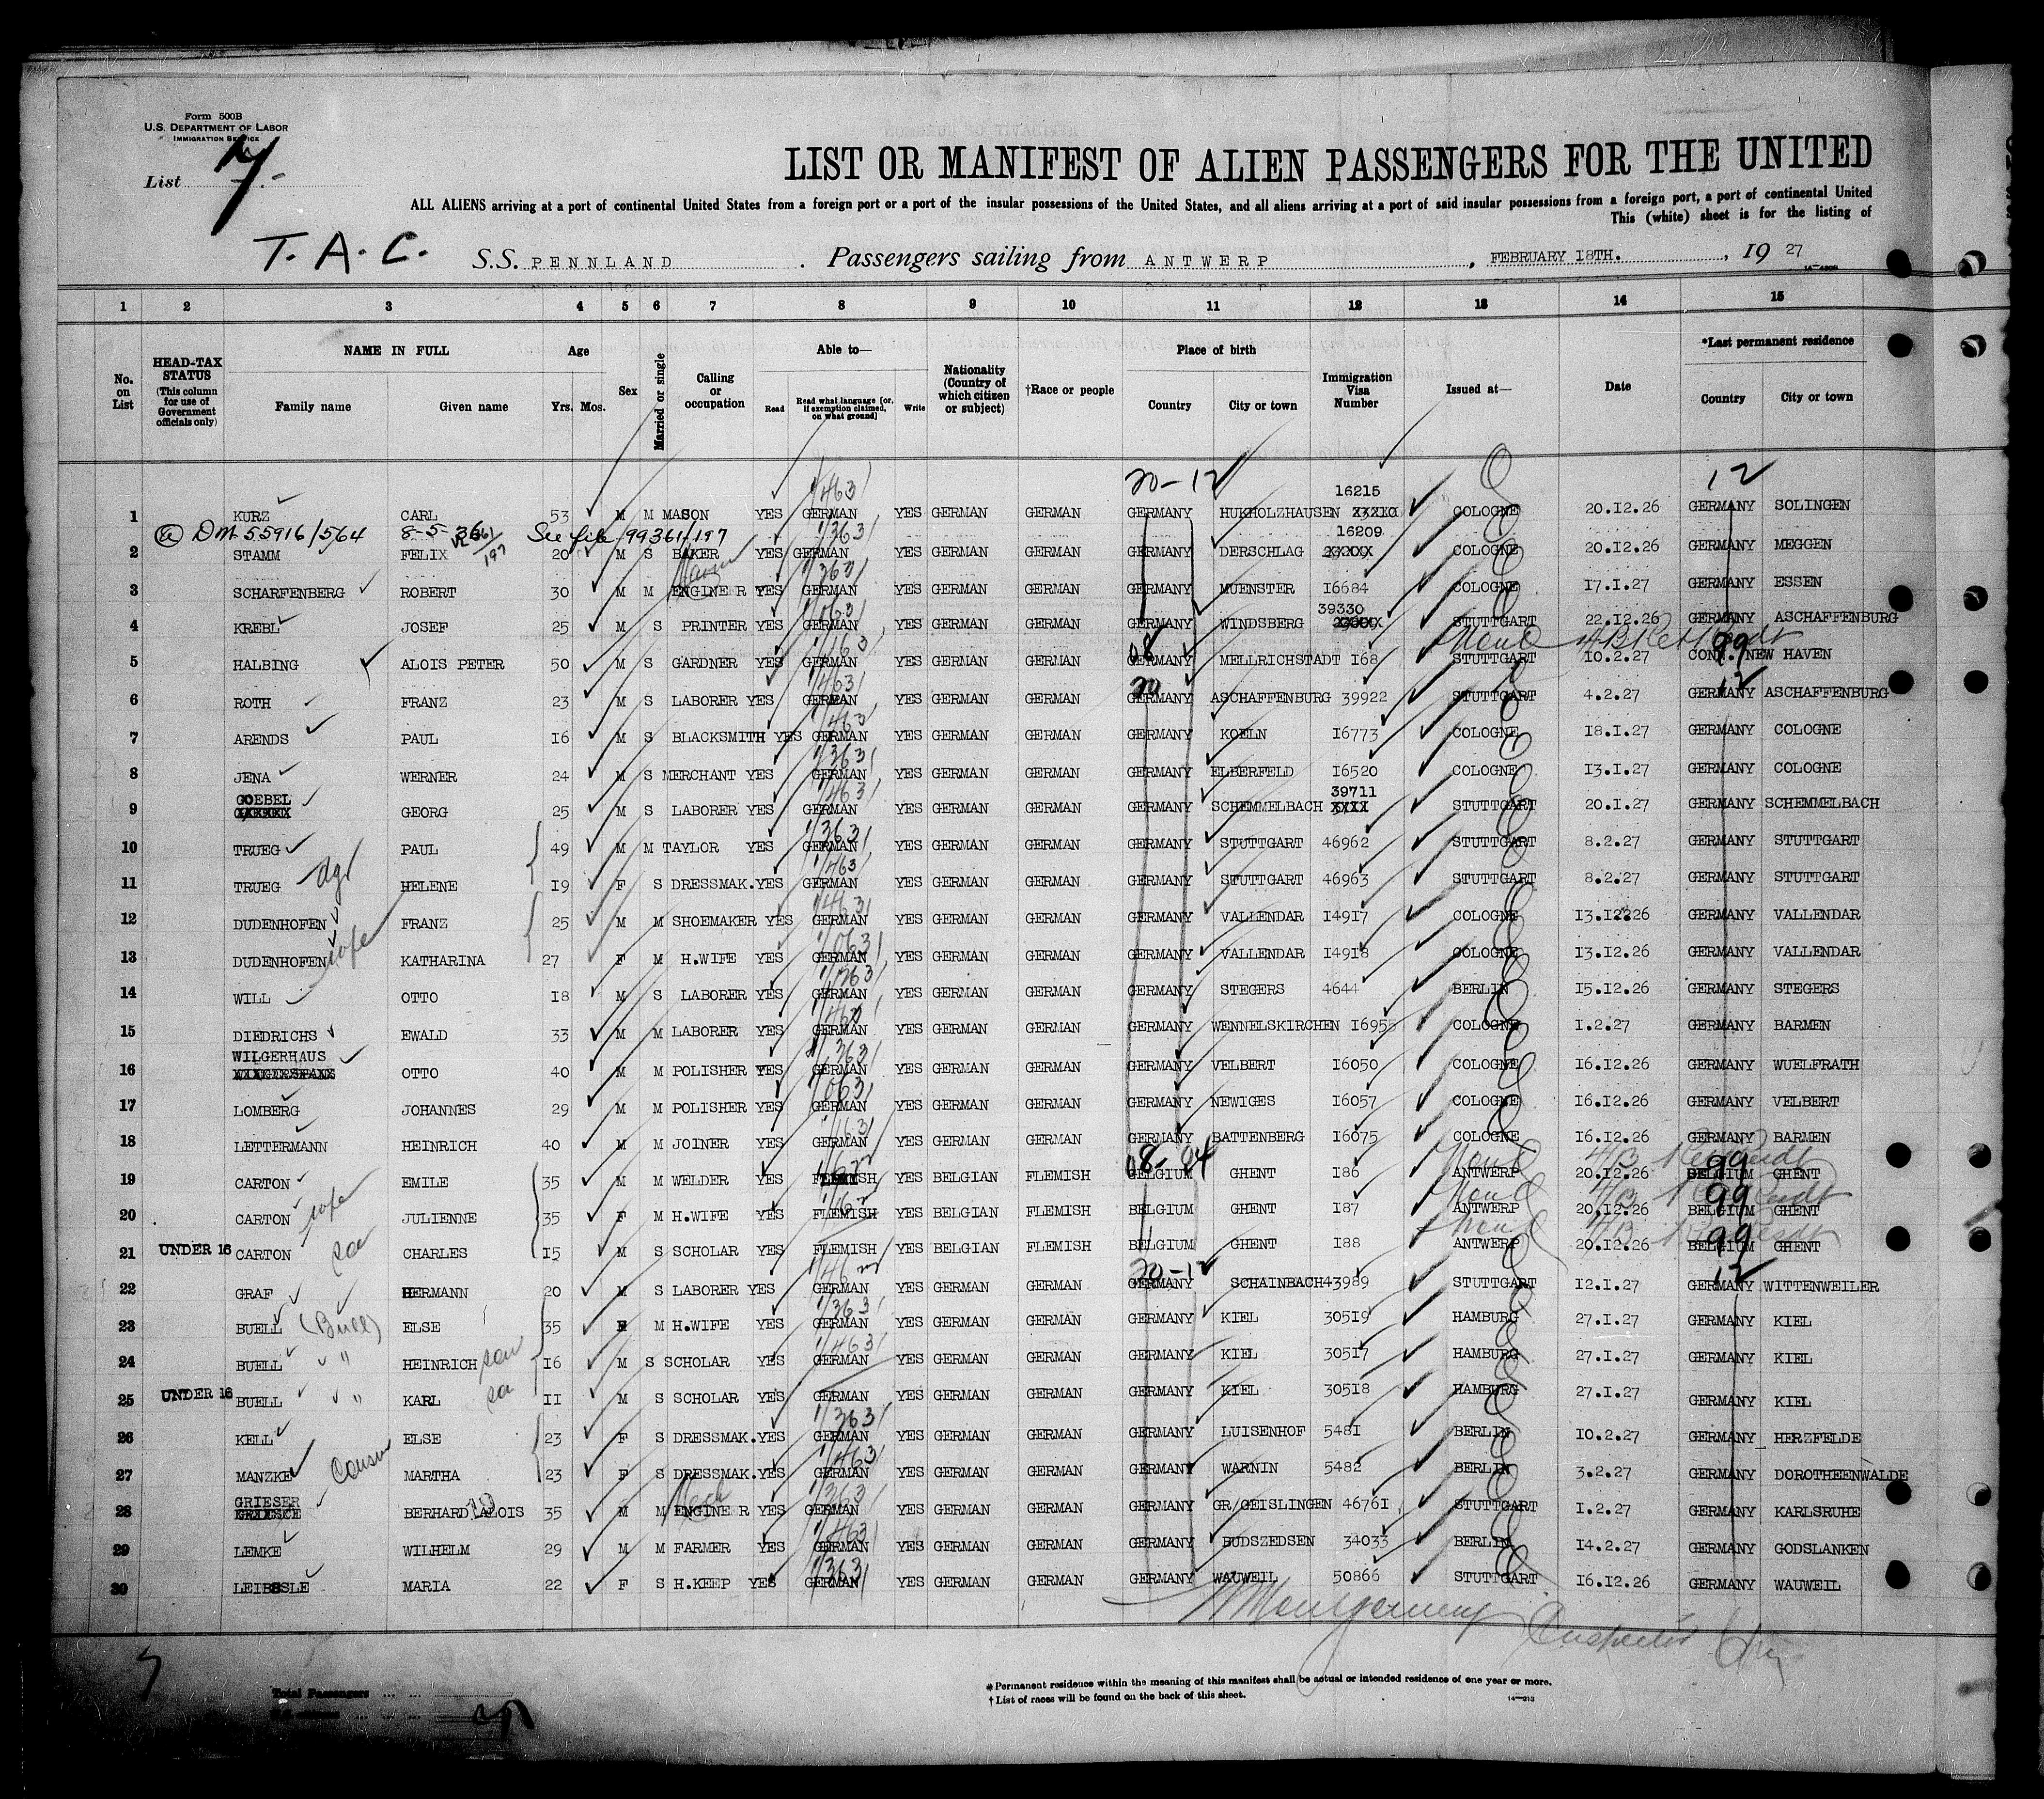 Form 500B
U.S. DEPARTMENT OF LABOR
IMMIGRATION SERVICE
List 7
LIST OR MANIFEST OF ALIEN PASSENGERS FOR THE UNITED
ALL ALIENS arriving at a port of continental United States from a foreign port or a port of the insular possessions of the United States, and all aliens arriving at a port of said insular possessions from a foreign port, a port of continental United
This (white) sheet is for the listing of
T.A.C. S.S. PENNLAND Passengers sailing from ANTWERP, FEBRUARY 18TH., 19 27
1 2 3 4 5 6 7 8 9 10 11 12 13 14 15
No. on List
HEAD-TAX STATUS (This column for use of Government officials only)
NAME IN FULL
Family name Given name
Age
Yrs. Mos.
Sex
Married or single
Calling or occupation
Able to—
Read Read what language [or, if exemption claimed, on what ground] Write
Nationality (Country of which citizen or subject)
†Race or people
Place of birth
Country City or town
Immigration Visa Number
Issued at—
Date
*Last permanent residence
Country City or town
20-12 12
16215
1 KURZ CARL 53 M M MASON YES GERMAN YES GERMAN GERMAN GERMANY HUKHOLZHAUSEN COLOGNE 20.12.26 GERMANY SOLINGEN
DM 55916/564 8-5-36 See file 99361/197
16209
2 STAMM FELIX 20 M S BAKER YES GERMAN YES GERMAN GERMAN GERMANY DERSCHLAG COLOGNE 20.12.26 GERMANY MEGGEN
3 SCHARFENBERG ROBERT 30 M M ENGINE R YES GERMAN YES GERMAN GERMAN GERMANY MUENSTER 16684 COLOGNE 17.1.27 GERMANY ESSEN
39330
4 KREBL JOSEF 25 M S PRINTER YES GERMAN YES GERMAN GERMAN GERMANY WINDSBERG STUTTGART 22.12.26 GERMANY ASCHAFFENBURG
08 99
5 HALBING ALOIS PETER 50 M S GARDNER YES GERMAN YES GERMAN GERMAN GERMANY MELLRICHSTADT 168 STUTTGART 10.2.27 CONN. NEW HAVEN
20 12
6 ROTH FRANZ 23 M S LABORER YES GERMAN YES GERMAN GERMAN GERMANY ASCHAFFENBURG 39922 STUTTGART 4.2.27 GERMANY ASCHAFFENBURG
7 ARENDS PAUL 16 M S BLACKSMITH YES GERMAN YES GERMAN GERMAN GERMANY KOELN 16773 COLOGNE 18.1.27 GERMANY COLOGNE
8 JENA WERNER 24 M S MERCHANT YES GERMAN YES GERMAN GERMAN GERMANY ELBERFELD 16520 COLOGNE 13.1.27 GERMANY COLOGNE
39711
9 GOEBEL GEORG 25 M S LABORER YES GERMAN YES GERMAN GERMAN GERMANY SCHEMMELBACH STUTTGART 20.1.27 GERMANY SCHEMMELBACH
10 TRUEG PAUL 49 M M TAYLOR YES GERMAN YES GERMAN GERMAN GERMANY STUTTGART 46962 STUTTGART 8.2.27 GERMANY STUTTGART
11 TRUEG dgt HELENE 19 F S DRESSMAK. YES GERMAN YES GERMAN GERMAN GERMANY STUTTGART 46963 STUTTGART 8.2.27 GERMANY STUTTGART
12 DUDENHOFEN FRANZ 25 M M SHOEMAKER YES GERMAN YES GERMAN GERMAN GERMANY VALLENDAR 14917 COLOGNE 13.12.26 GERMANY VALLENDAR
13 DUDENHOFEN wife KATHARINA 27 F M H.WIFE YES GERMAN YES GERMAN GERMAN GERMANY VALLENDAR 14918 COLOGNE 13.12.26 GERMANY VALLENDAR
14 WILL OTTO 18 M S LABORER YES GERMAN YES GERMAN GERMAN GERMANY STEGERS 4644 BERLIN 15.12.26 GERMANY STEGERS
15 DIEDRICHS EWALD 33 M M LABORER YES GERMAN YES GERMAN GERMAN GERMANY WENNELSKIRCHEN 16955 COLOGNE 1.2.27 GERMANY BARMEN
16 WILGERHAUS OTTO 40 M M POLISHER YES GERMAN YES GERMAN GERMAN GERMANY VELBERT 16050 COLOGNE 16.12.26 GERMANY WUELFRATH
17 LOMBERG JOHANNES 29 M M POLISHER YES GERMAN YES GERMAN GERMAN GERMANY NEWIGES 16057 COLOGNE 16.12.26 GERMANY VELBERT
18 LETTERMANN HEINRICH 40 M M JOINER YES GERMAN YES GERMAN GERMAN GERMANY BATTENBERG 16075 COLOGNE 16.12.26 GERMANY BARMEN
08-04 99
19 CARTON EMILE 35 M M WELDER YES FLEMISH YES BELGIAN FLEMISH BELGIUM GHENT 186 ANTWERP 20.12.26 BELGIUM GHENT
99
20 CARTON wife JULIENNE 35 F M H.WIFE YES FLEMISH YES BELGIAN FLEMISH BELGIUM GHENT 187 ANTWERP 20.12.26 BELGIUM GHENT
99
21 UNDER 16 CARTON son CHARLES 15 M S SCHOLAR YES FLEMISH YES BELGIAN FLEMISH BELGIUM GHENT 188 ANTWERP 20.12.26 BELGIUM GHENT
20-12 12
22 GRAF HERMANN 20 M S LABORER YES GERMAN YES GERMAN GERMAN GERMANY SCHAINBACH 43989 STUTTGART 12.1.27 GERMANY WITTENWEILER
23 BUELL (Büll) ELSE 35 F M H.WIFE YES GERMAN YES GERMAN GERMAN GERMANY KIEL 30519 HAMBURG 27.1.27 GERMANY KIEL
24 BUELL " HEINRICH son 16 M S SCHOLAR YES GERMAN YES GERMAN GERMAN GERMANY KIEL 30517 HAMBURG 27.1.27 GERMANY KIEL
25 UNDER 16 BUELL " KARL son 11 M S SCHOLAR YES GERMAN YES GERMAN GERMAN GERMANY KIEL 30518 HAMBURG 27.1.27 GERMANY KIEL
26 KELL ELSE 23 F S DRESSMAK. YES GERMAN YES GERMAN GERMAN GERMANY LUISENHOF 5481 BERLIN 10.2.27 GERMANY HERZFELDE
27 MANZKE Cousin MARTHA 23 F S DRESSMAK. YES GERMAN YES GERMAN GERMAN GERMANY WARNIN 5482 BERLIN 3.2.27 GERMANY DOROTHEENWALDE
28 GRIESER BERHARD ALOIS 35 M M ENGINE R YES GERMAN YES GERMAN GERMAN GERMANY GR/GEISLINGEN 46761 STUTTGART 1.2.27 GERMANY KARLSRUHE
29 LEMKE WILHELM 29 M M FARMER YES GERMAN YES GERMAN GERMAN GERMANY BUDSZEDSEN 34033 BERLIN 14.2.27 GERMANY GODSLANKEN
30 LEIBSSLE MARIA 22 F S H.KEEP YES GERMAN YES GERMAN GERMAN GERMANY WAUWEIL 50866 STUTTGART 16.12.26 GERMANY WAUWEIL
Montgomery Inspector
*Permanent residence within the meaning of this manifest shall be actual or intended residence of one year or more.
†List of races will be found on the back of this sheet.
14—213
Total Passengers